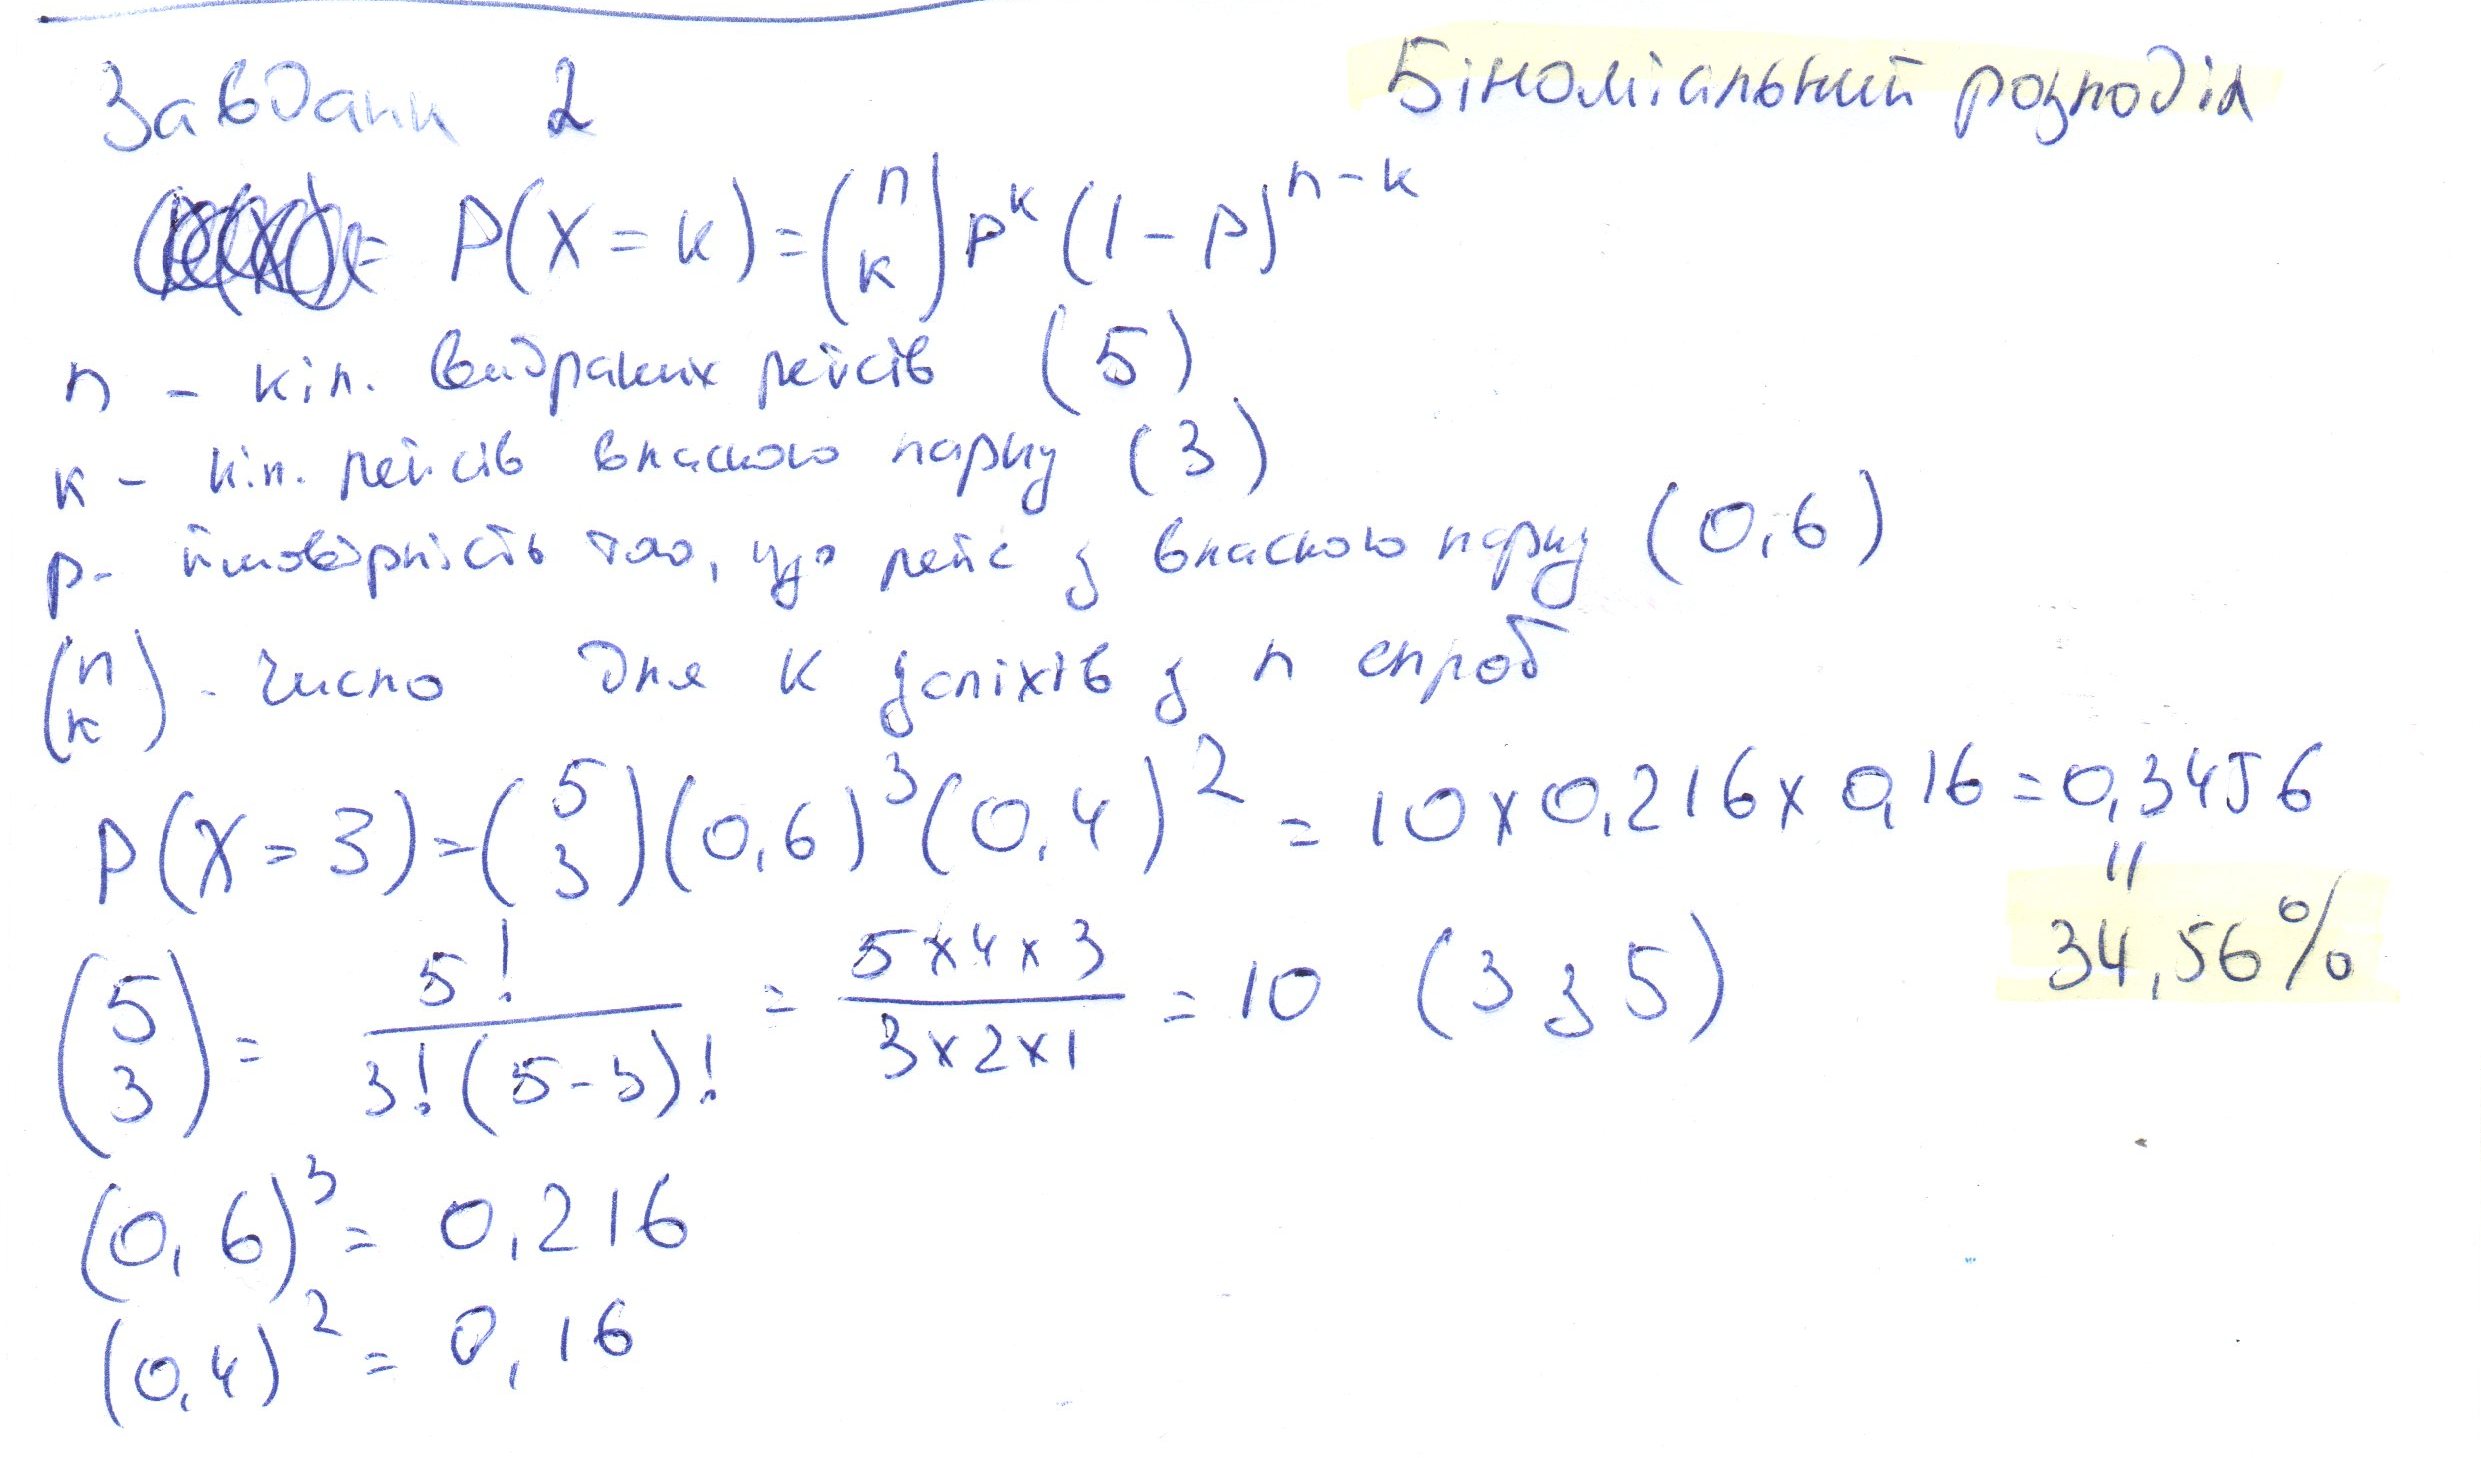 Завдання 2 Біноміальний розподіл
P(X = k) = (n k) p^k (1 - p)^{n-k}
n - кіл. вибраних рейсів (5)
k - кіл. рейсів власного парку (3)
p - ймовірність того, що рейс з власного парку (0,6)
(n k) - число для k успіхів з n спроб
P(X = 3) = (5 3)(0,6)^3(0,4)^2 = 10 x 0,216 x 0,16 = 0,3456
=
34,56%
(5 3) = 5! / 3!(5-3)! = 5 x 4 x 3 / 3 x 2 x 1 = 10 (3 з 5)
(0,6)^3 = 0,216
(0,4)^2 = 0,16